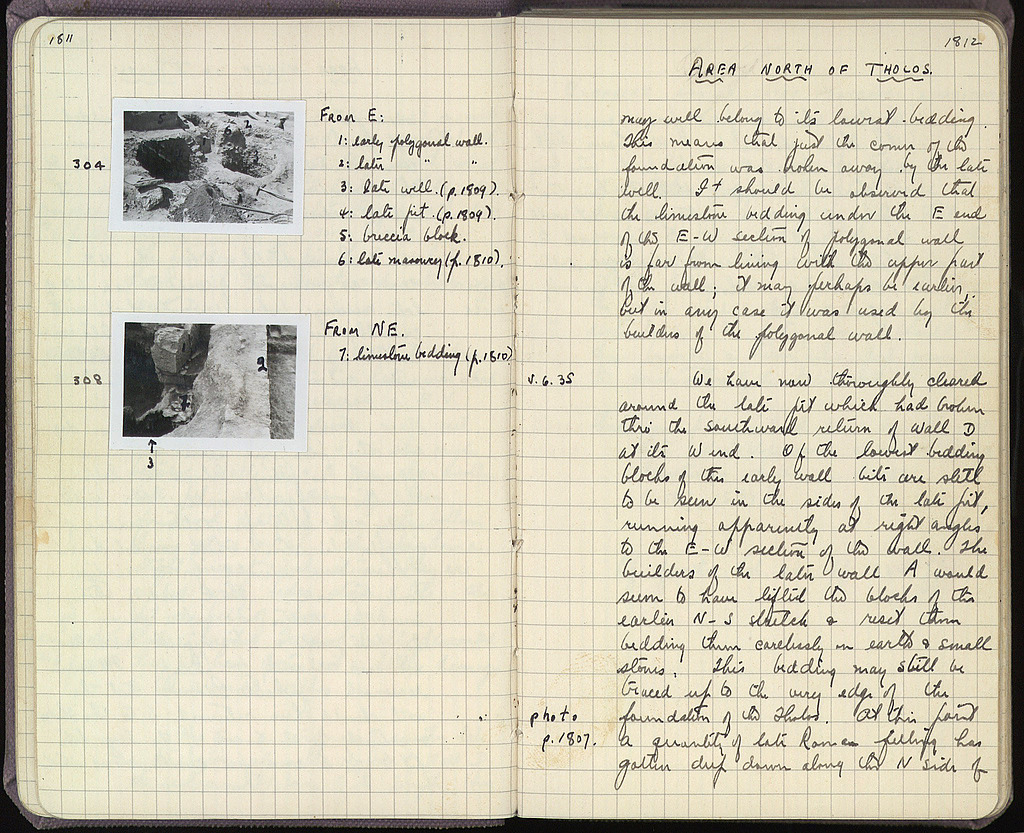 1811
304
From E:
1: early polygonal wall.
2: later " "
3: late well. (p. 1809).
4: late pit. (p. 1809).
5: breccia block.
6: late masonry (p. 1810).
5 2
6
308
From NE.
7: limestone bedding (p. 1810)
2
7
↑
3
1812
AREA NORTH OF THOLOS.
may well belong to its lowest bedding.
This means that just the corner of the
foundation was broken away by the late
well. It should be observed that
the limestone bedding under the E end
of the E-W section of polygonal wall
is far from lining with the upper part
of the wall; it may perhaps be earlier,
but in any case it was used by the
builders of the polygonal wall.
V.6.35 We have now thoroughly cleared
around the late pit which had broken
thro the southward return of wall D
at its W end. Of the lowest bedding
blocks of this early wall bits are still
to be seen in the sides of the late pit,
running apparently at right angles
to the E-W section of the wall. The
builders of the later wall A would
seem to have lifted the blocks of the
earlier N-S stretch & reset them
bedding them carelessly on earth & small
stones. This bedding may still be
traced up to the very edge of the
photo foundation of the Tholos. At this point
p.1807. a quantity of late Roman filling has
gotten deep down along the N side of